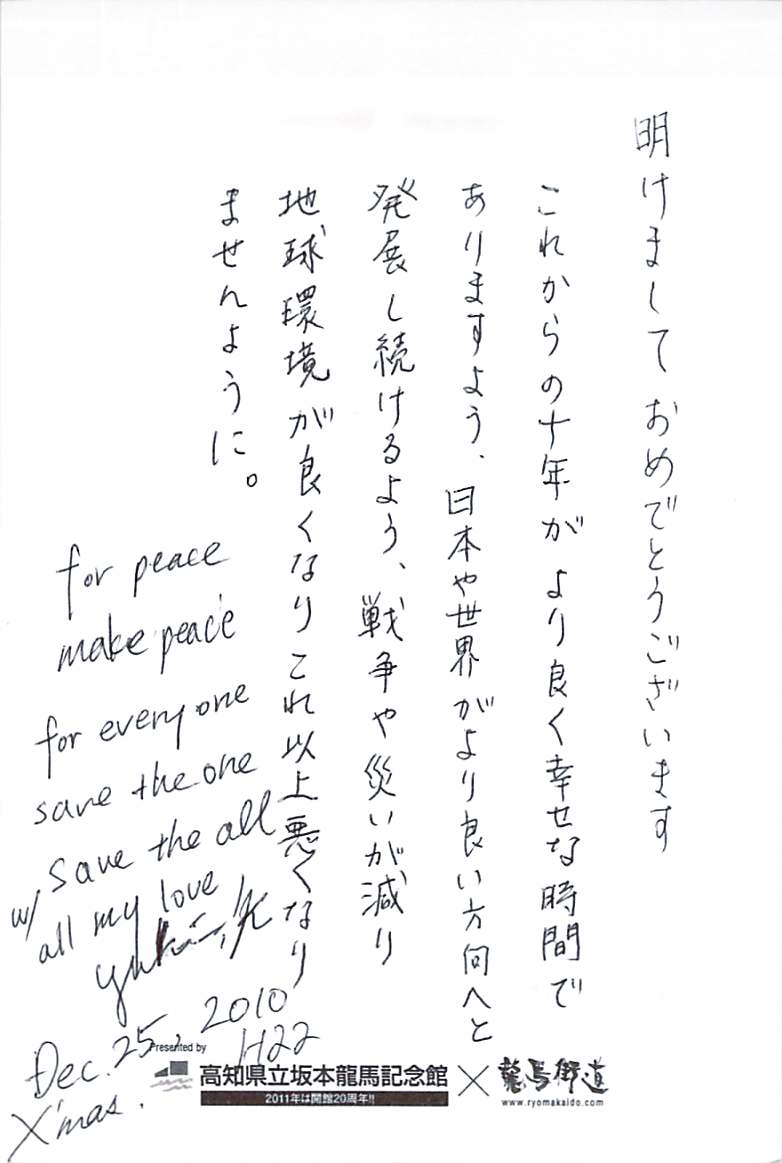 明けましておめでとうございます
これからの十年がより良く幸せな時間で
ありますよう、日本や世界がより良い方向へと
発展し続けるよう、戦争や災いが減り
地球環境が良くなりこれ以上悪くなり
ませんように。
for peace
make peace
for everyone
save the one
save the all
w/ all my love
Dec. 25, 2010
H22
X'mas.
Presented by
高知県立坂本龍馬記念館 × 龍馬街道
2011年は開館20周年!!
www.ryomakaido.com